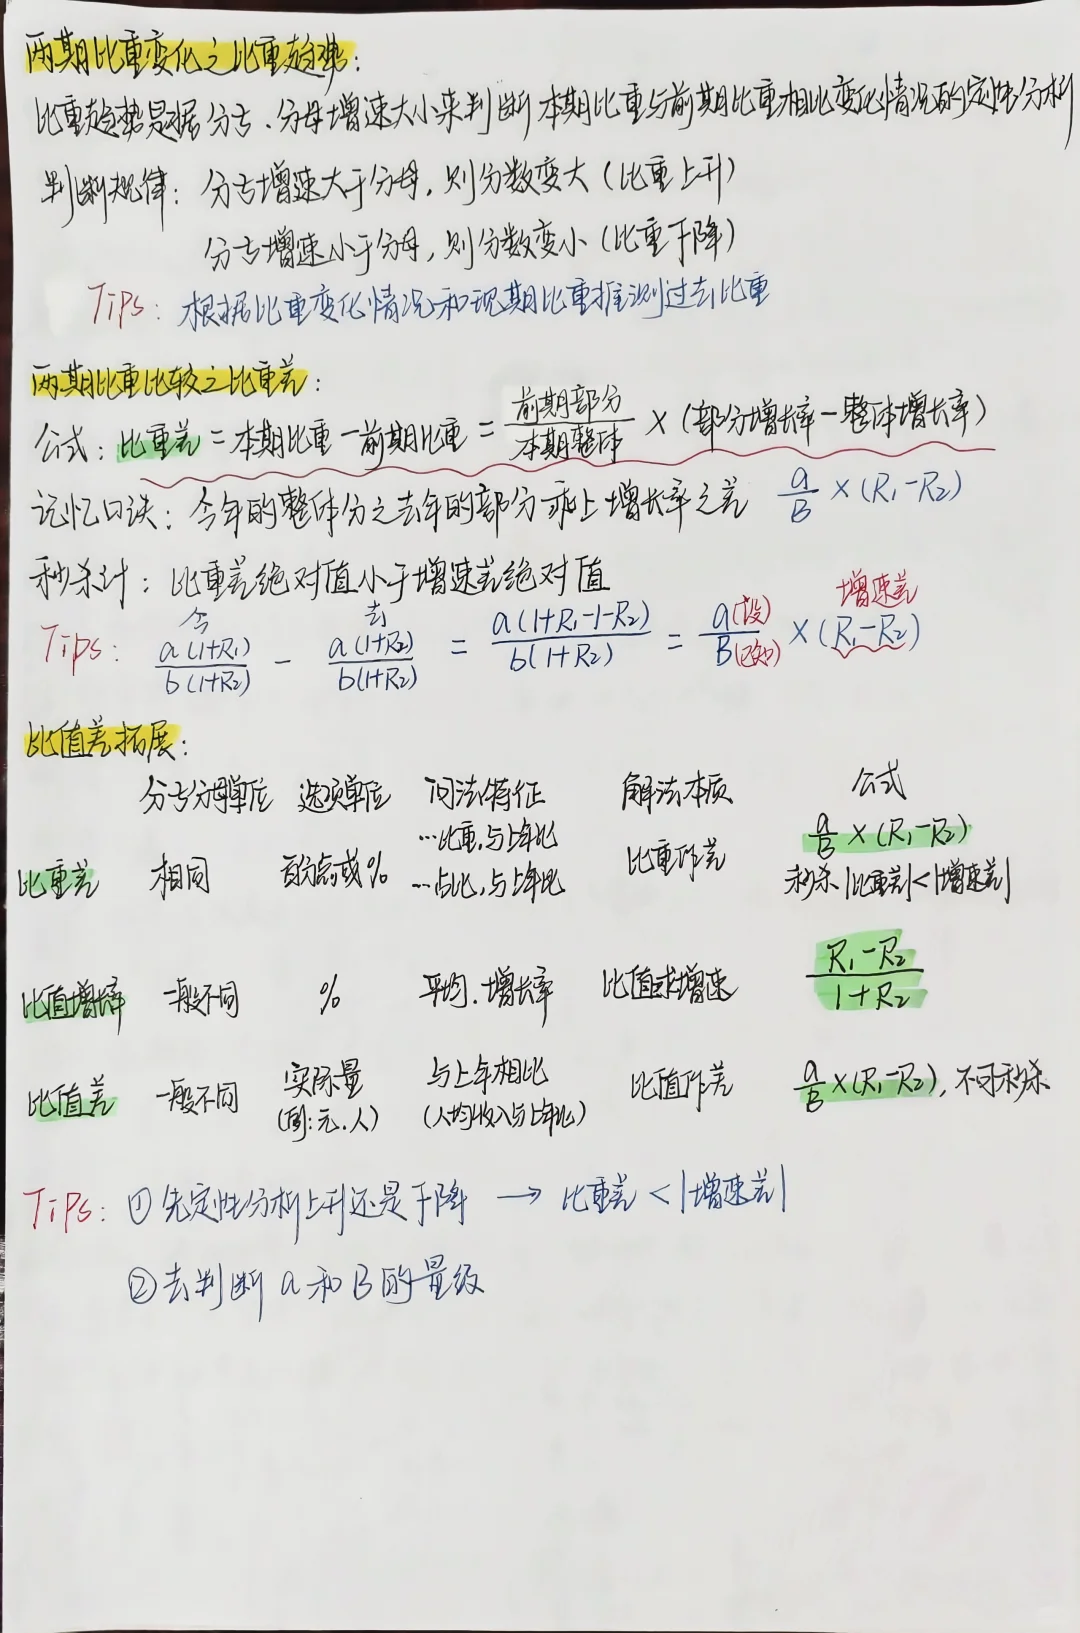 两期比重变化之比重趋势：
比重趋势是据分子、分母增速大小来判断本期比重与前期比重相比变化情况的定性分析
判断规律：分子增速大于分母，则分数变大（比重上升）
分子增速小于分母，则分数变小（比重下降）
Tips：根据比重变化情况和现期比重推测过去比重
两期比重比较之比重差：
公式：比重差＝本期比重－前期比重＝前期部分/本期整体×（部分增长率－整体增长率）
记忆口诀：今年的整体分之去年的部分乘上增长率之差 a/B×(R₁-R₂)
秒杀计：比重差绝对值小于增速差绝对值
今 去 增速差
Tips： a(1+R₁)/b(1+R₂) - a(1+R₂)/b(1+R₂) = a(1+R₁-1-R₂)/b(1+R₂) = a(设)/B(已知)×(R₁-R₂)
比值差拓展：
分子分母单位 选项单位 问法特征 解法本质 公式
比重差 相同 百分点或% …比重，与上年比 …占比，与上年比 比重作差 a/B×(R₁-R₂) 秒杀|比重差|<|增速差|
比值增长率 一般不同 % 平均、增长率 比值求增速 R₁-R₂/1+R₂
比值差 一般不同 实际量（例：元、人） 与上年相比（人均收入与上年比） 比值作差 a/B×(R₁-R₂)，不可秒杀
Tips：①先定性分析上升还是下降 → 比重差<|增速差|
②去判断a和B的量级